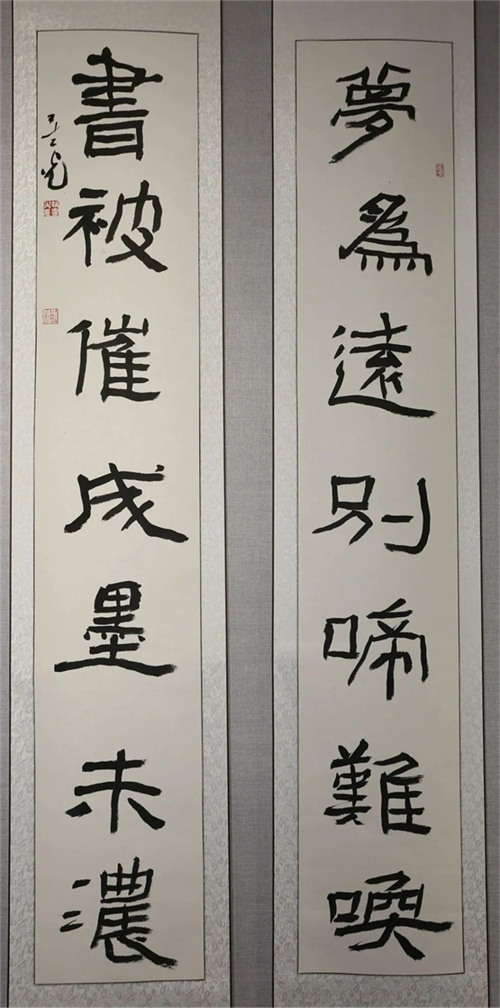 夢為遠別啼難喚
書被催成墨未濃